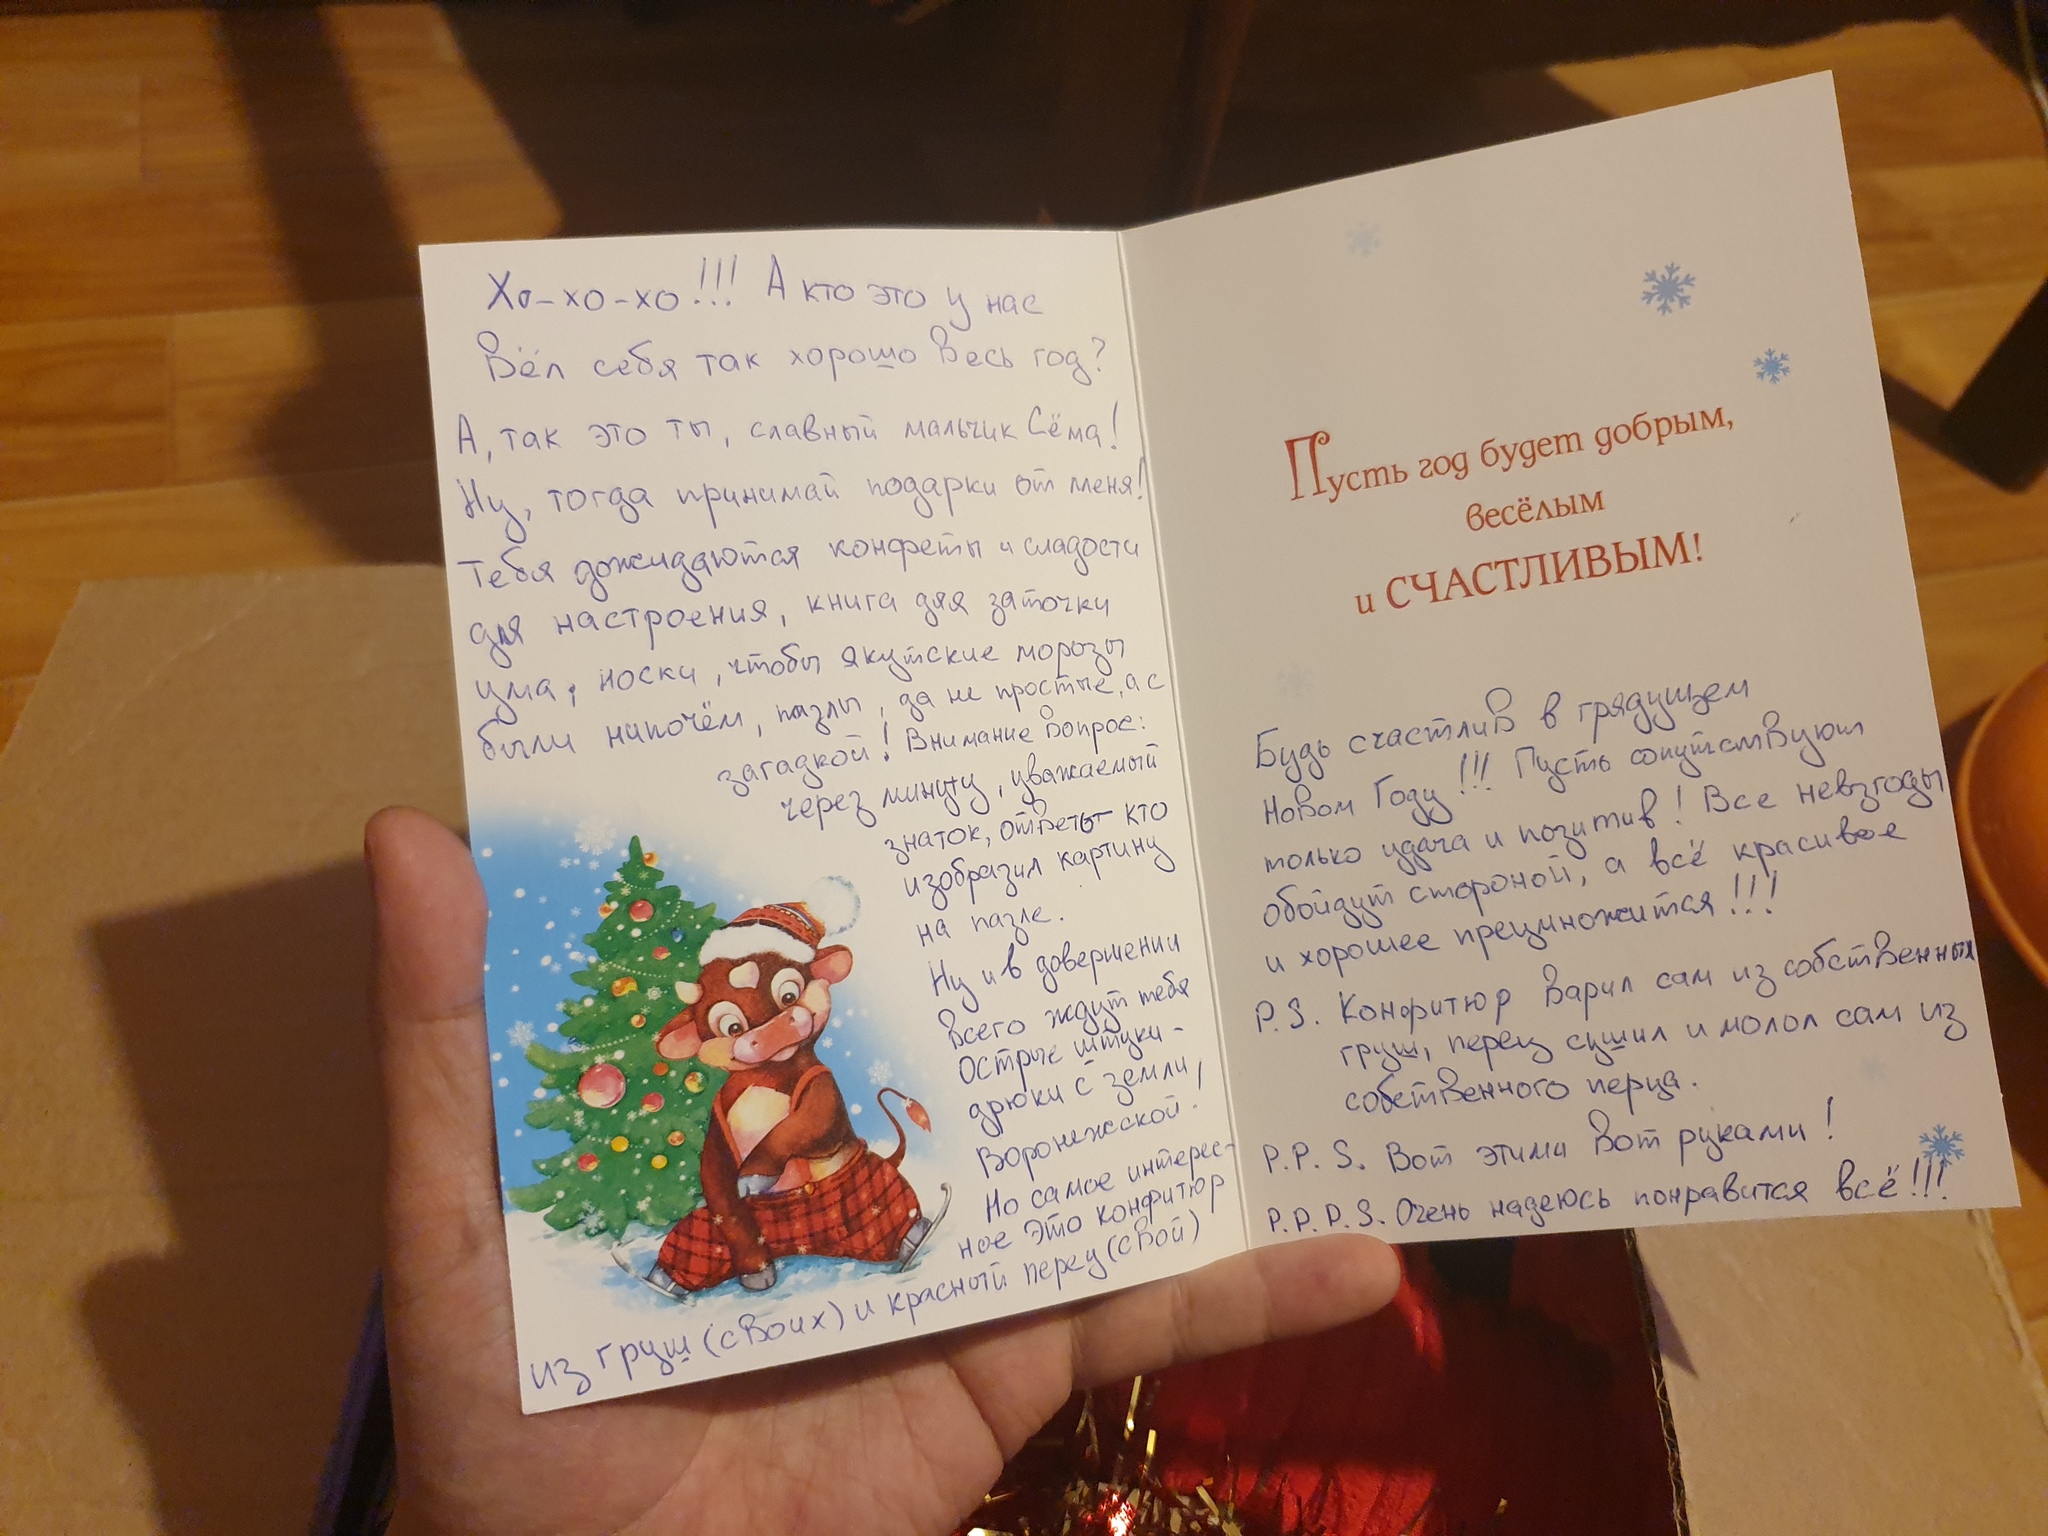 Хо-хо-хо!!! А кто это у нас
Вёл себя так хорошо весь год?
А, так это ты, славный мальчик Сёма!
Ну, тогда принимай подарки от меня!
Тебя дожидаются конфеты и сладости
для настроения, книга для заточки
ума, носки, чтобы якутские морозы
были нипочём, пазлы, да не простые, а с
загадкой! Внимание вопрос:
через минуту, уважаемый
знаток, ответь кто
изобразил картину
на пазле.
Ну и в довершении
всего ждут тебя
Острые штуки-
дрюки с земли
Воронежской!
Но самое интерес-
ное это конфитюр
из груш (своих) и красный перец (свой)
Пусть год будет добрым,
весёлым
и СЧАСТЛИВЫМ!
Будь счастлив в грядущем
Новом Году!!! Пусть сопутствуют
только удача и позитив! Все невзгоды
обойдут стороной, а всё красивое
и хорошее преумножится!!!
P.S. Конфитюр варил сам из собственных
груш, перец сушил и молол сам из
собственного перца.
P.P.S. Вот этими вот руками!
P.P.P.S. Очень надеюсь понравится всё!!!